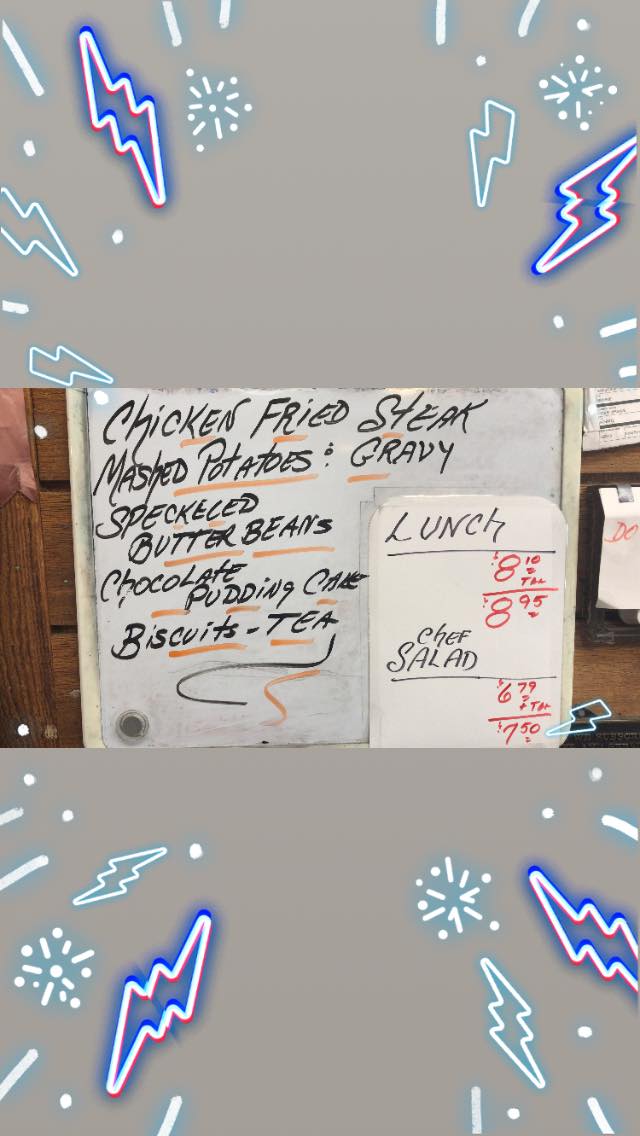 Chicken Fried Steak
Mashed Potatoes : Gravy
Speckeled
Butter Beans
Chocolate
Pudding Cake
Biscuits - Tea
Lunch
$8 10
Tax
$8 95
Chef
Salad
$6 79
+ Tax
$7 50
DO